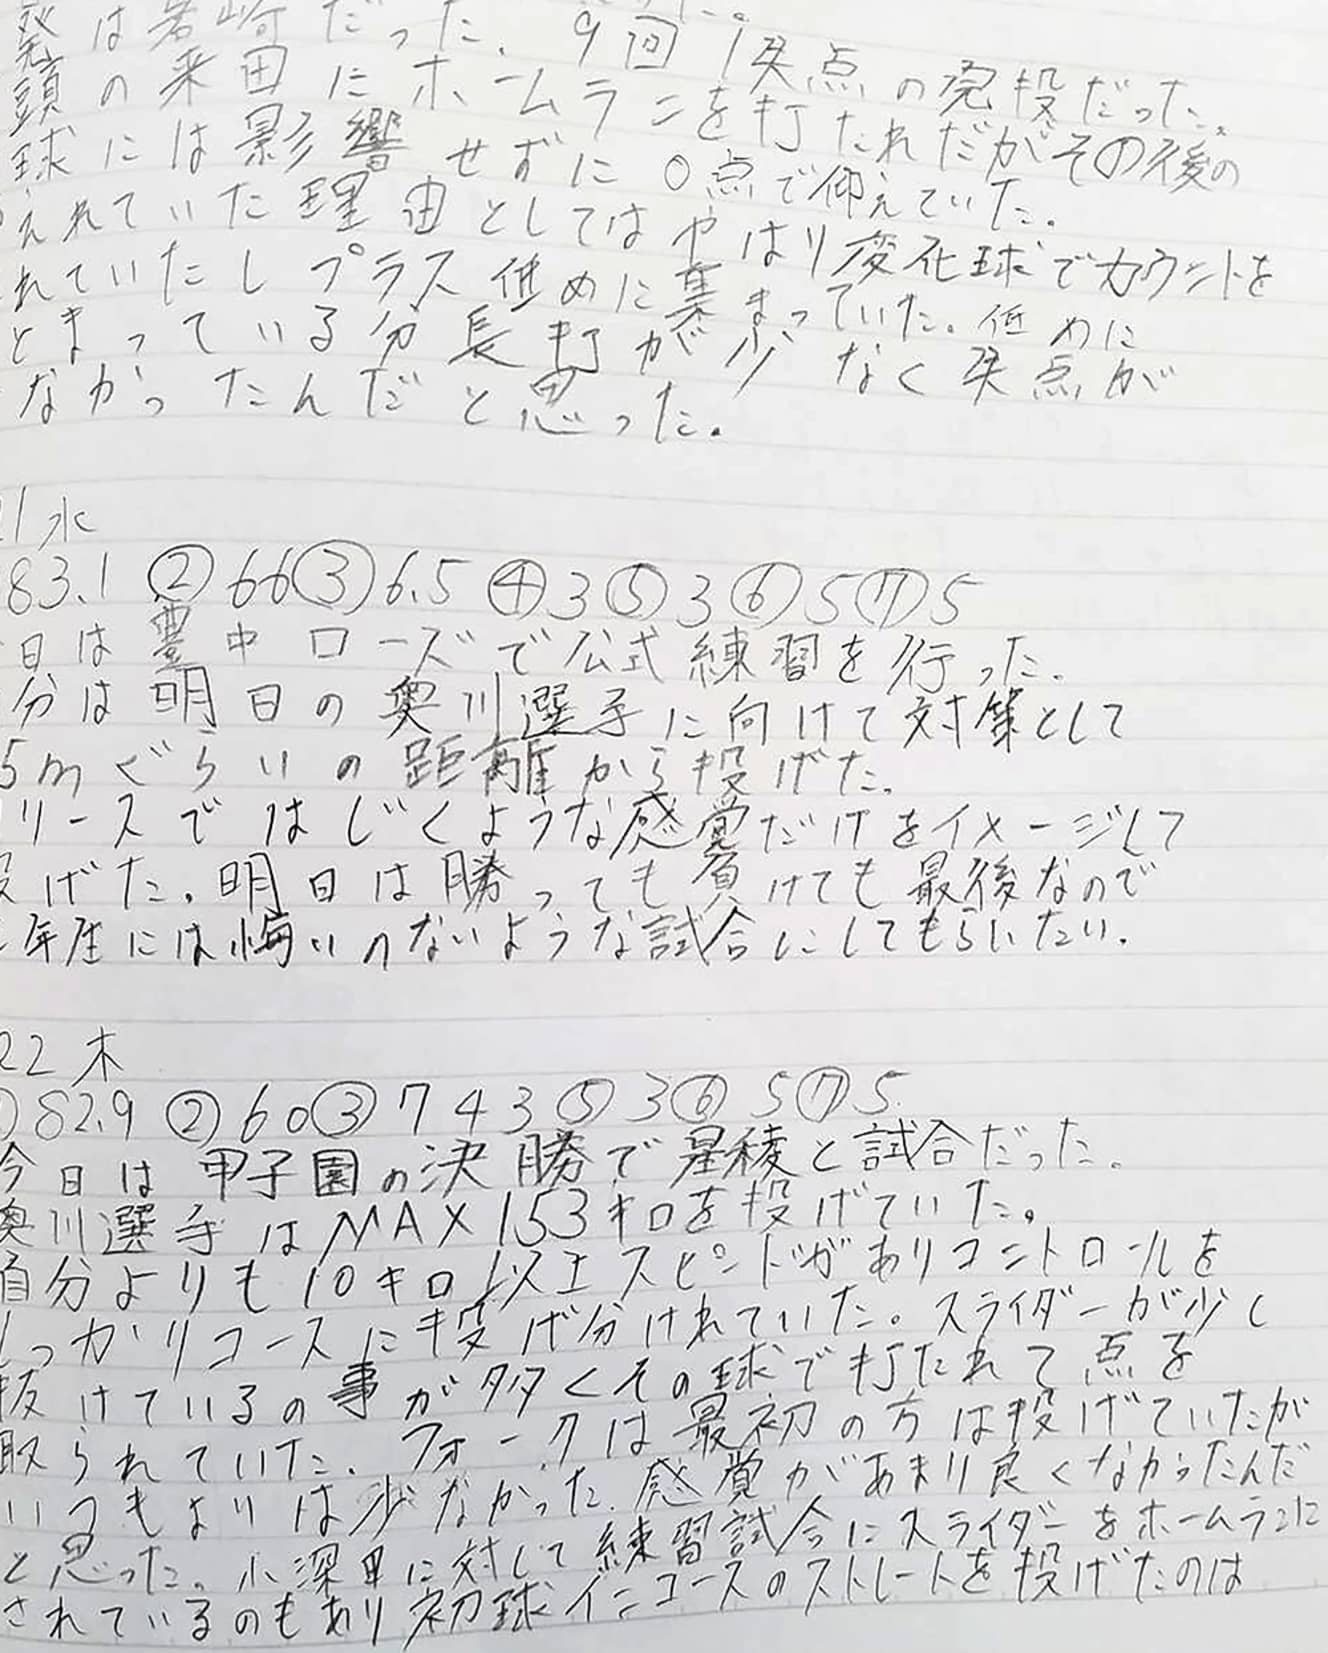 発は岩崎だった、9回1失点の完投だった。
頭の来田にホームランを打たれだがその後の
球には影響せずに0点で仰えていた。
えれていた理由としてはやはり変化球でカウントを
れていたしプラス低めに集まっていた。低めに
とまっている分長打が少なく失点が
なかったんだと思った。
21水
83.1②66③6.5④3⑤3⑥5⑦5
日は豊中ローズで公式練習を行った。
分は明日の奥川選手に向けて対策として
5mぐらいの距離から投げた。
リースではじくような感覚だけをイメージして
投げた。明日は勝っても負けても最後なので
年生には悔いのないような試合にしてもらいたい。
22木
①82.9②60③743⑤3⑥5⑦5
今日は甲子園の決勝で星稜と試合だった。
奥川選手はMAX153キロを投げていた。
自分よりも10キロ以上スピードがありコントロールを
しっかりコースに投げ分けれていた。スライダーが少し
抜けているの事が多くその球で打たれて点を
取られていた。フォークは最初の方は投げていたが
いつもよりは少なかった。感覚があまり良くなかったんだ
と思った。小深田に対して練習試合にスライダーをホームランに
されているのもあり初球インコースのストレートを投げたのは